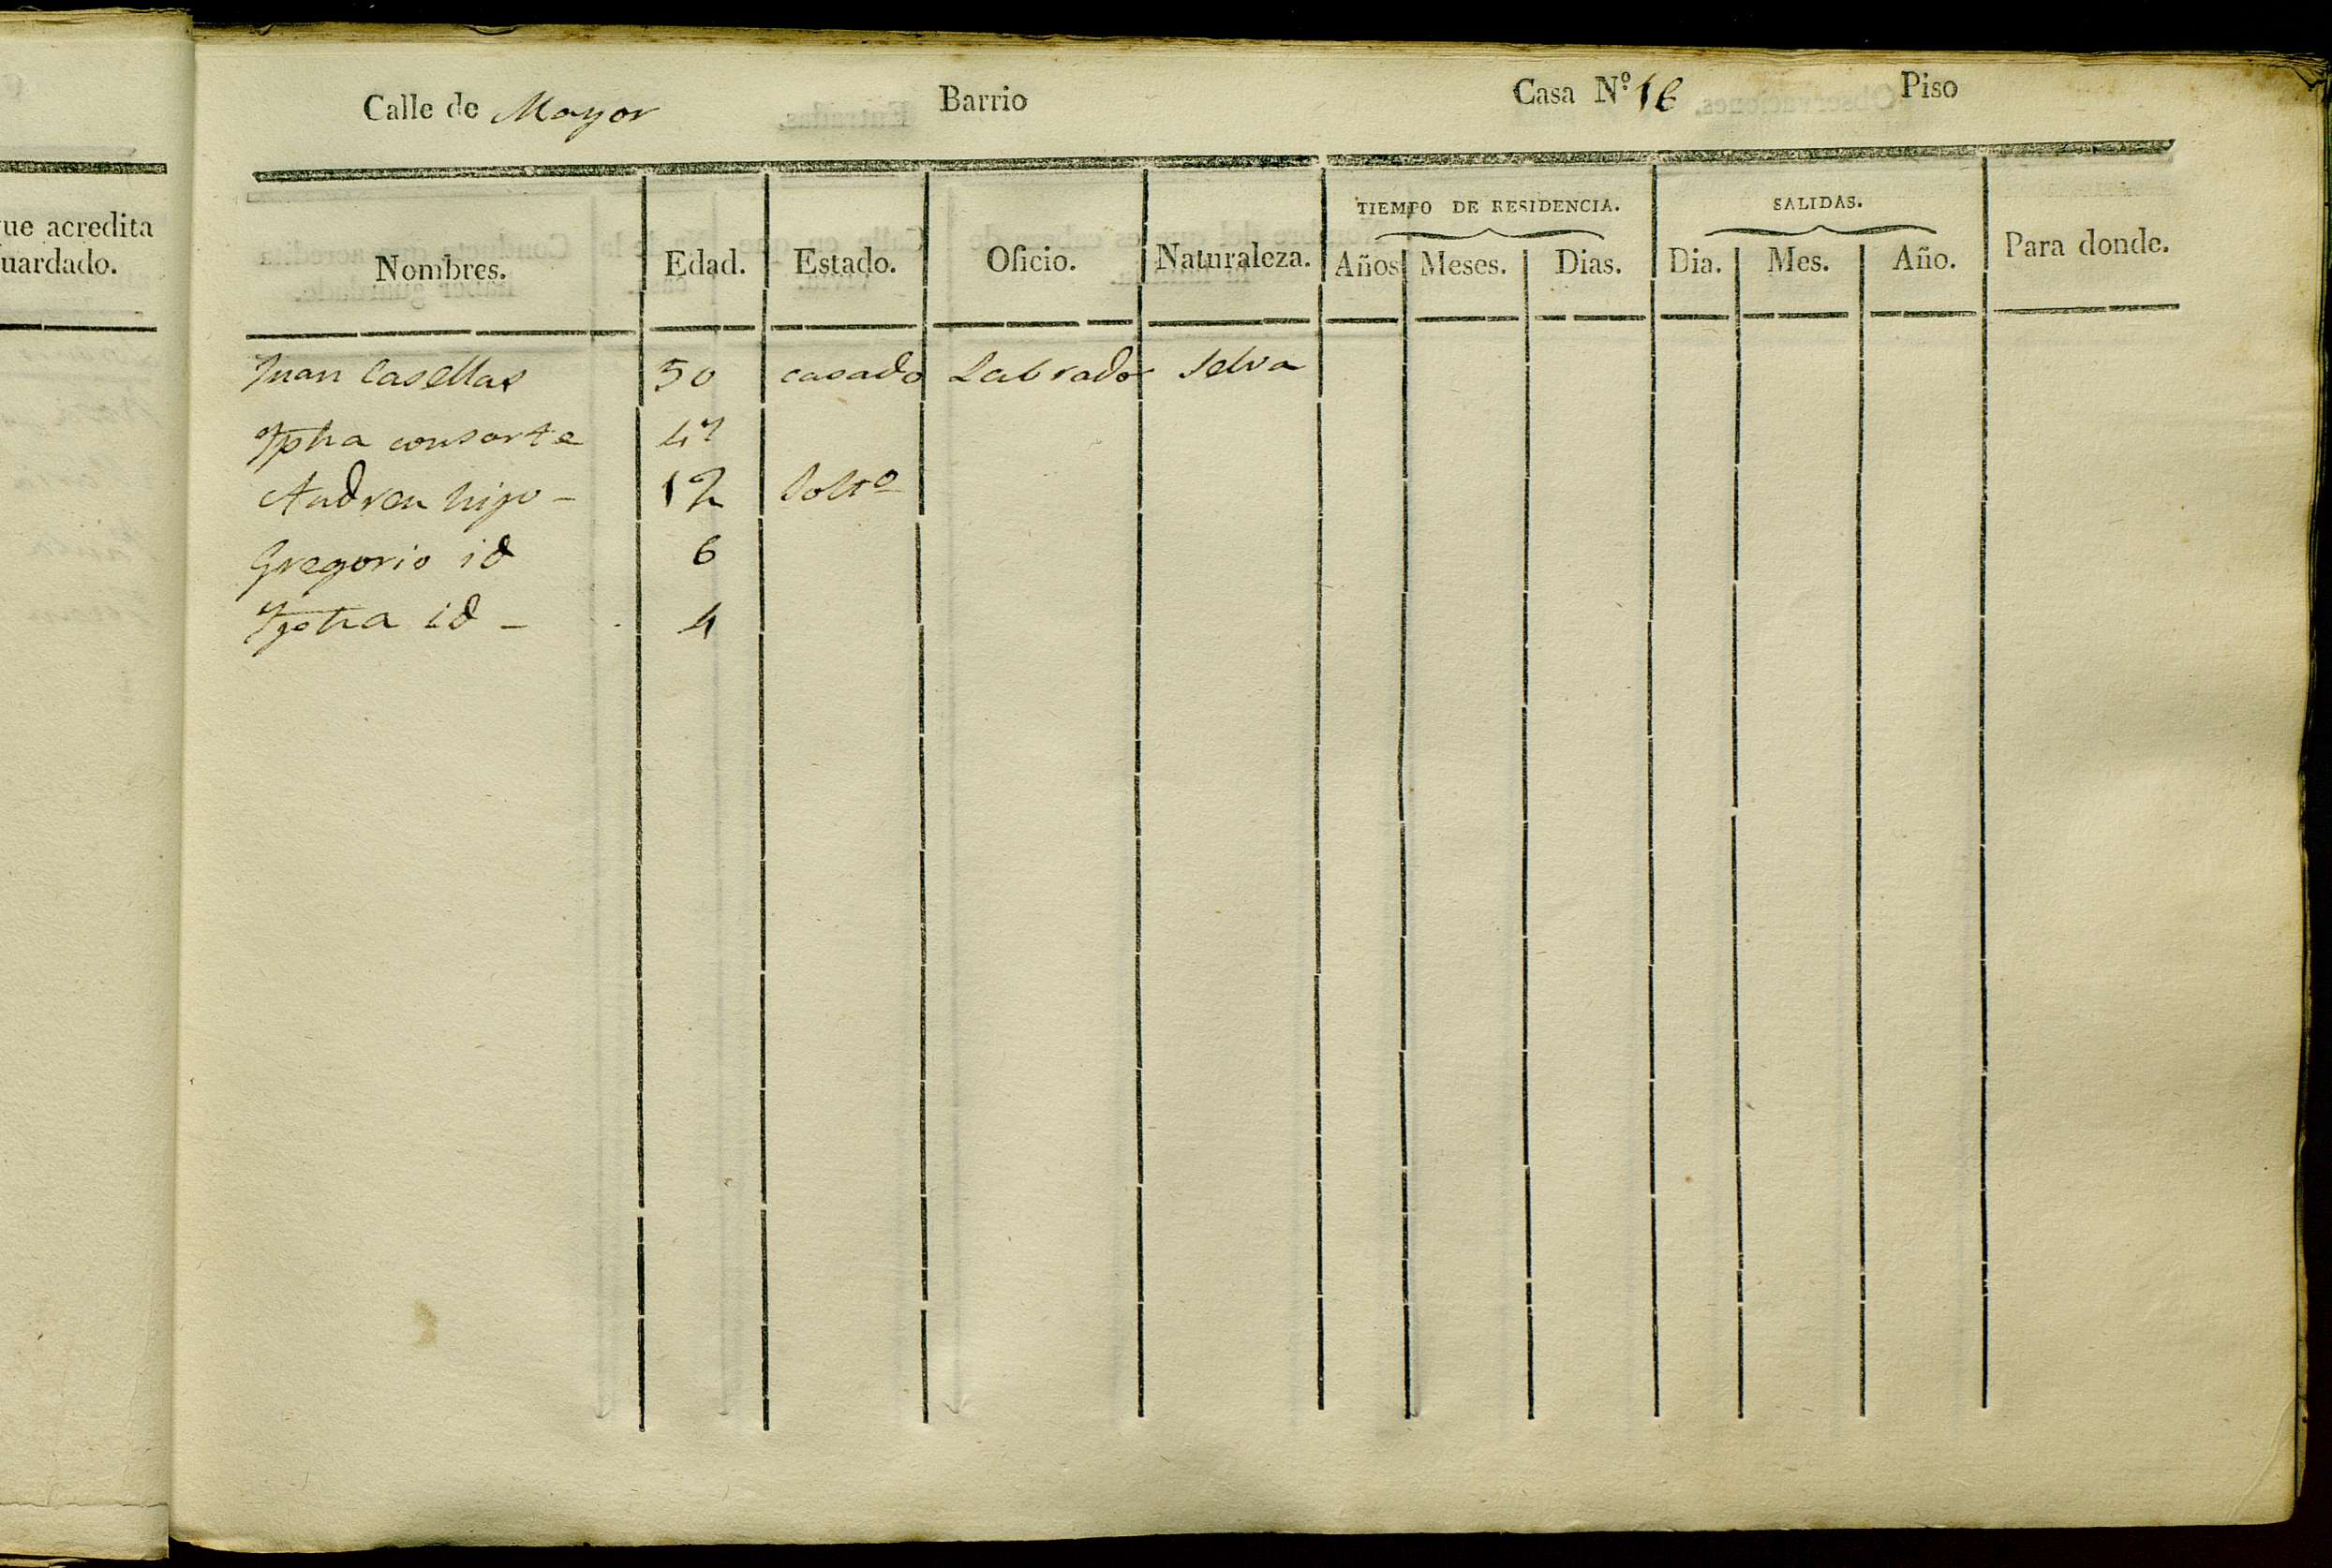 que acredita
guardado.
Calle de Mayor Barrio Casa N.º 16 Piso
TIEMPO DE RESIDENCIA. SALIDAS.
Nombres. Edad. Estado. Oficio. Naturaleza. Años Meses. Dias. Dia. Mes. Año. Para donde.
Juan Casellas 50 casado Labrador Selva
Jpha consorte 47
Andreu hijo - 12 Solto
Gregorio id 6
Jpha id - 4